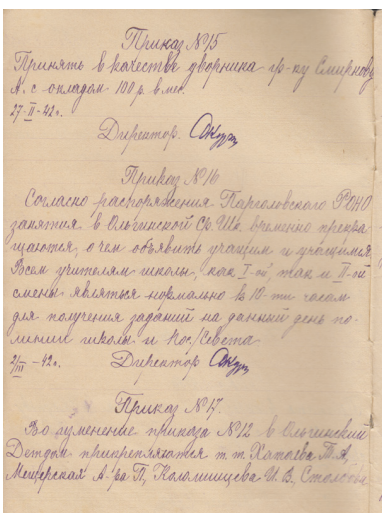 Приказ №15
Принять в качестве дворника гр-ку Смирнову
А. с окладом 100 р. в мес.
27-II-42г.
Директор
Приказ №16
Согласно распоряжения Парголовского РОНО
занятия в Ольгинской Ср. Шк. временно прекра
щаются, о чем объявить учащим и учащимся
Всем учителям школы, как I-ой, так и II-ой
смены являться нормально к 10-ти часам
для получения заданий на данный день по
линии школы и Пос/Совета
2/III-42г. Директор
Приказ №17.
Во изменение приказа №12 в Ольгинский
Детдом прикрепляются т.т. Хатаева Т. А,
Мещерская А-ра П, Коломийцева И. В,